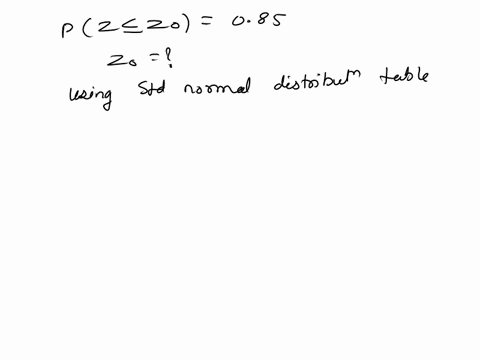 P(Z ≤ Z0) = 0.85
Z0 = ?
using std normal distribuᵗⁿ table